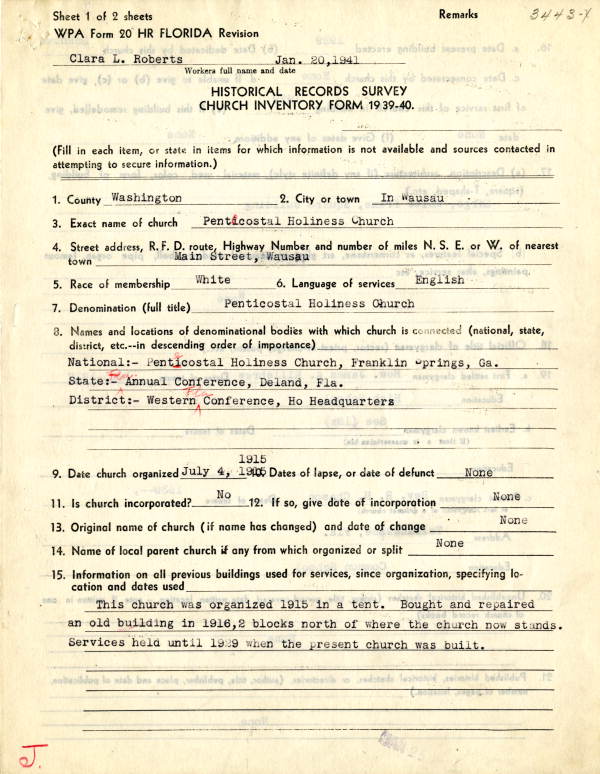 Sheet 1 of 2 sheets Remarks 3443-X
WPA Form 20 HR FLORIDA Revision
Clara L. Roberts Jan. 20,1941
Workers full name and date
HISTORICAL RECORDS SURVEY
CHURCH INVENTORY FORM 1939-40.
(Fill in each item, or state in items for which information is not available and sources contacted in
attempting to secure information.)
1. County Washington 2. City or town In Wausau
3. Exact name of church Penticostal Holiness Church
4. Street address, R. F. D. route, Highway Number and number of miles N. S. E. or W. of nearest
town Main Street, Wausau
5. Race of membership White 6. Language of services English
7. Denomination (full title) Penticostal Holiness Church
8. Names and locations of denominational bodies with which church is connected (national, state,
district, etc.--in descending order of importance)
National:- Pentecostal Holiness Church, Franklin Springs, Ga.
State:- Annual Conference, Deland, Fla.
Fla.
District:- Western Conference, Ho Headquarters
1915
9. Date church organized July 4, 1915 10. Dates of lapse, or date of defunct None
11. Is church incorporated? No 12. If so, give date of incorporation None
13. Original name of church (if name has changed) and date of change None
14. Name of local parent church if any from which organized or split None
15. Information on all previous buildings used for services, since organization, specifying lo-
cation and dates used
This church was organized 1915 in a tent. Bought and repaired
an old building in 1916,2 blocks north of where the church now stands.
Services held until 1929 when the present church was built.
J.